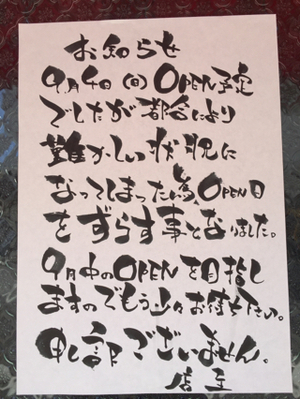 お知らせ
9月4日(日)OPEN予定
でしたが都合により
難かしい状況に
なってしまった為、OPEN日
をずらす事となりました。
9月中のOPENを目指し
ますのでもう少々お待ち下さい。
申し訳ございません。
店主